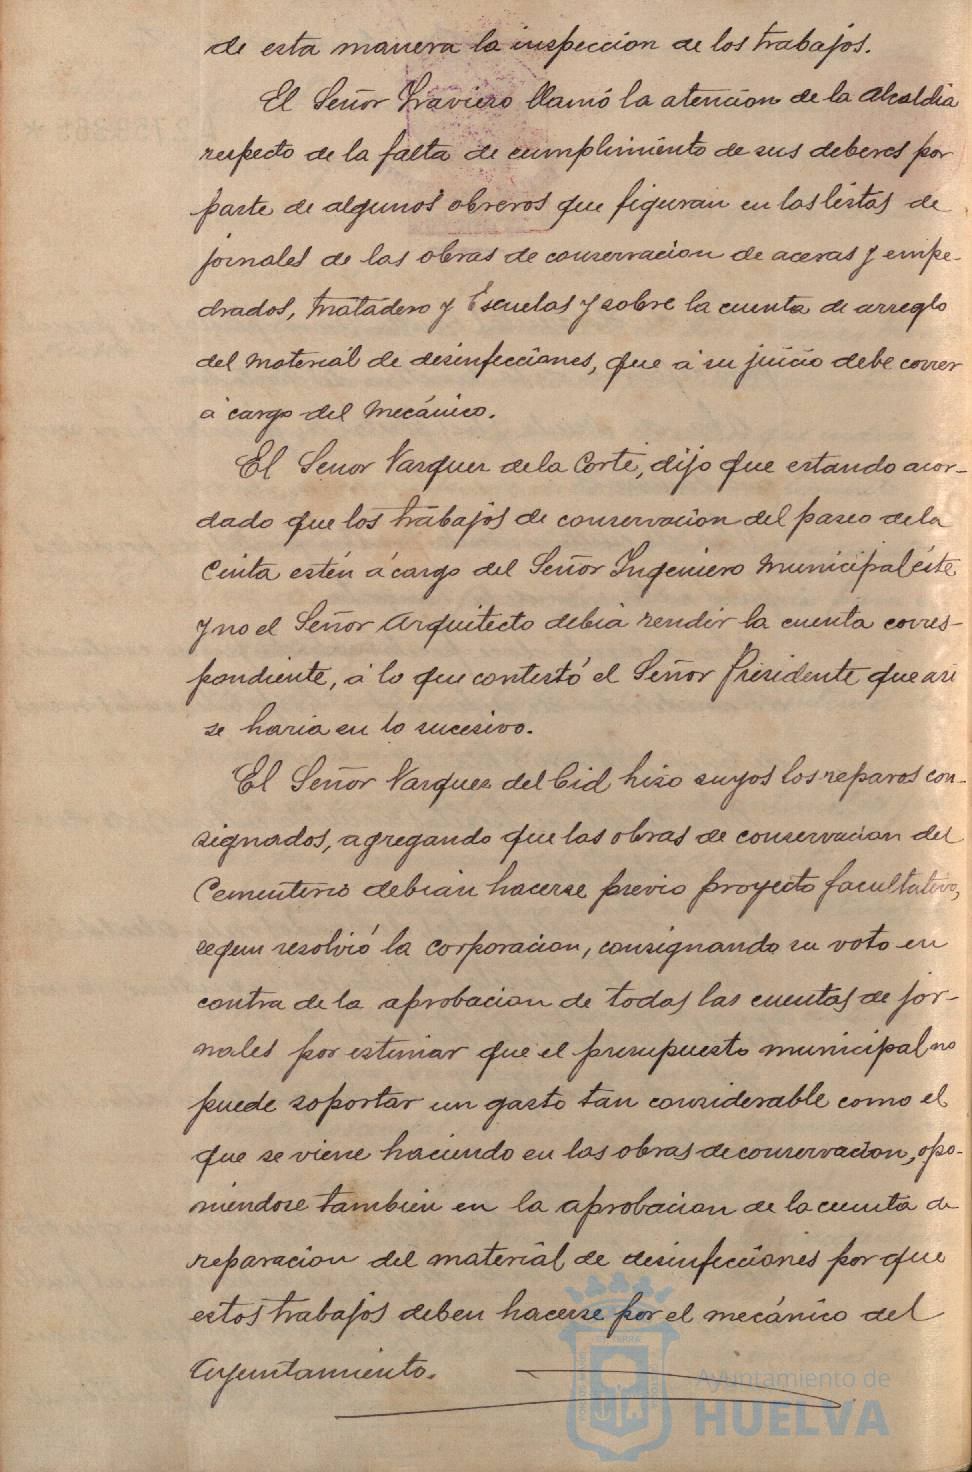 de esta manera la inspeccion de los trabajos.
El Señor Traviero llamó la atencion de la Alcaldia
respecto de la falta de cumplimiento de sus deberes por
parte de algunos obreros que figuran en las listas de
jornales de las obras de conservacion de aceras y empe-
drados, Matadero y Escuelas y sobre la cuenta de arreglo
del material de desinfecciones, que á su juicio debe correr
á cargo del mecánico.
El Señor Vazquez de la Corte, dijo que estando acor-
dado que los trabajos de conservacion del paseo de la
Cinta estén á cargo del Señor Ingeniero Municipal éste
y no el Señor Arquitecto debia rendir la cuenta corres-
pondiente, á lo que contestó el Señor Presidente que asi
se haria en lo sucesivo.
El Señor Vazquez del Cid hizo suyos los reparos con-
signados, agregando que las obras de conservacion del
Cementerio debian hacerse previo proyecto facultativo,
segun resolvió la corporacion, consignando su voto en
contra de la aprobacion de todas las cuentas de jor-
nales por estimar que el presupuesto municipal no
puede soportar un gasto tan considerable como el
que se viene haciendo en las obras de conservacion, opo-
niendose tambien en la aprobacion de la cuenta de
reparacion del material de desinfecciones por que
estos trabajos deben hacerse por el mecánico del
Ayuntamiento.
Ayuntamiento de
HUELVA